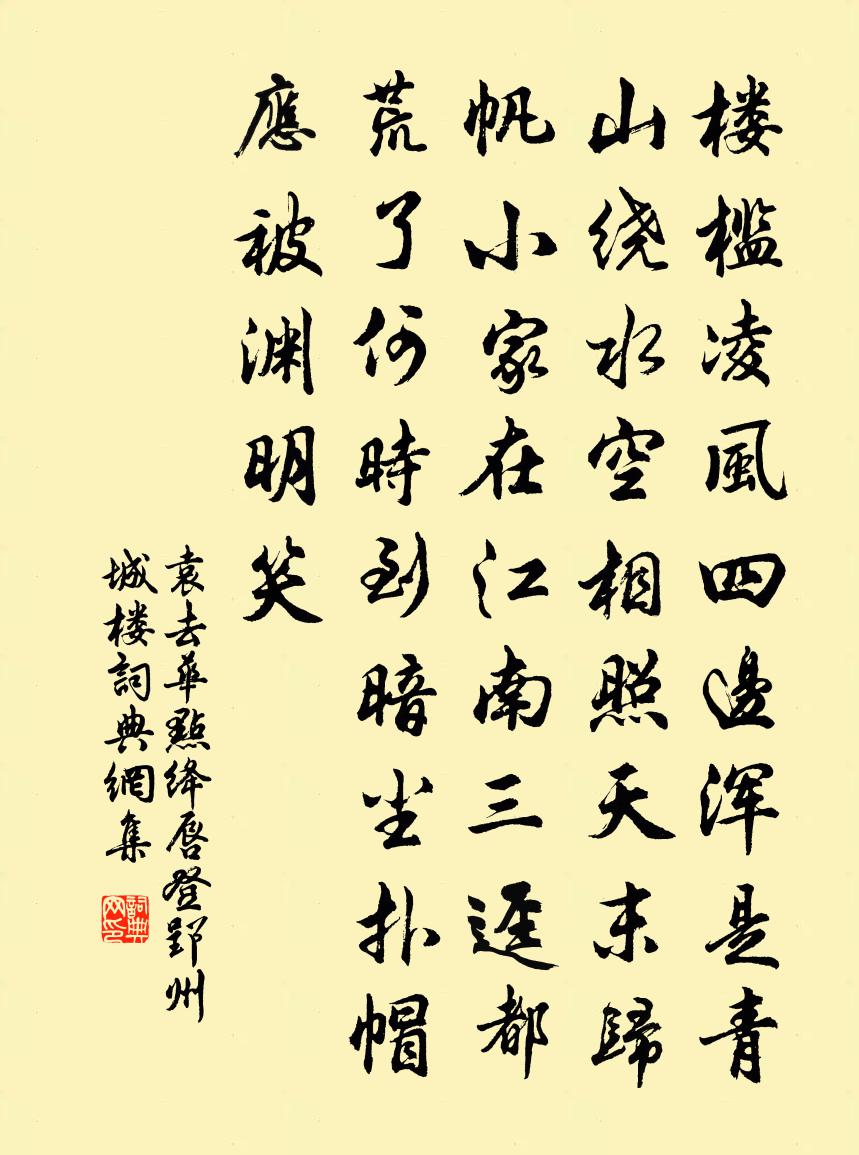 楼槛凌風四邊浑是青
山绕水空相照天末歸
帆小家在江南三逕都
荒了何時到暗尘扑帽
應被渊明笑
袁去華點绛唇登郢州
城楼詞典網集
詞典
网印